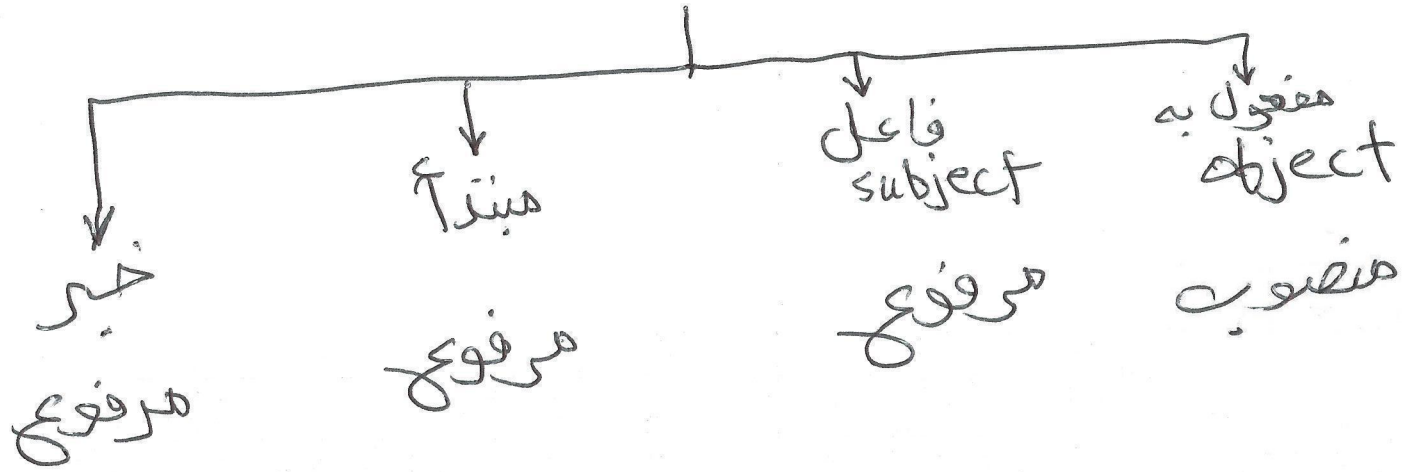 مفعول به
object
منصوب
فاعل
subject
مرفوع
مبتدأ
مرفوع
خبر
مرفوع